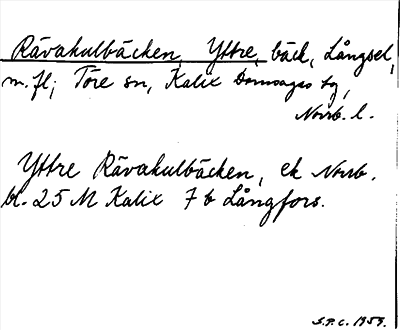 Rävakulbäcken, Yttre, bäck, Långsel,
m. fl; Töre sn, Kalix Domsagas tg,
Norrb. l.
Yttre Rävakulbäcken, ek Norrb.
bl. 25 M Kalix 7 b Långfors.
S.P.C. 1959.